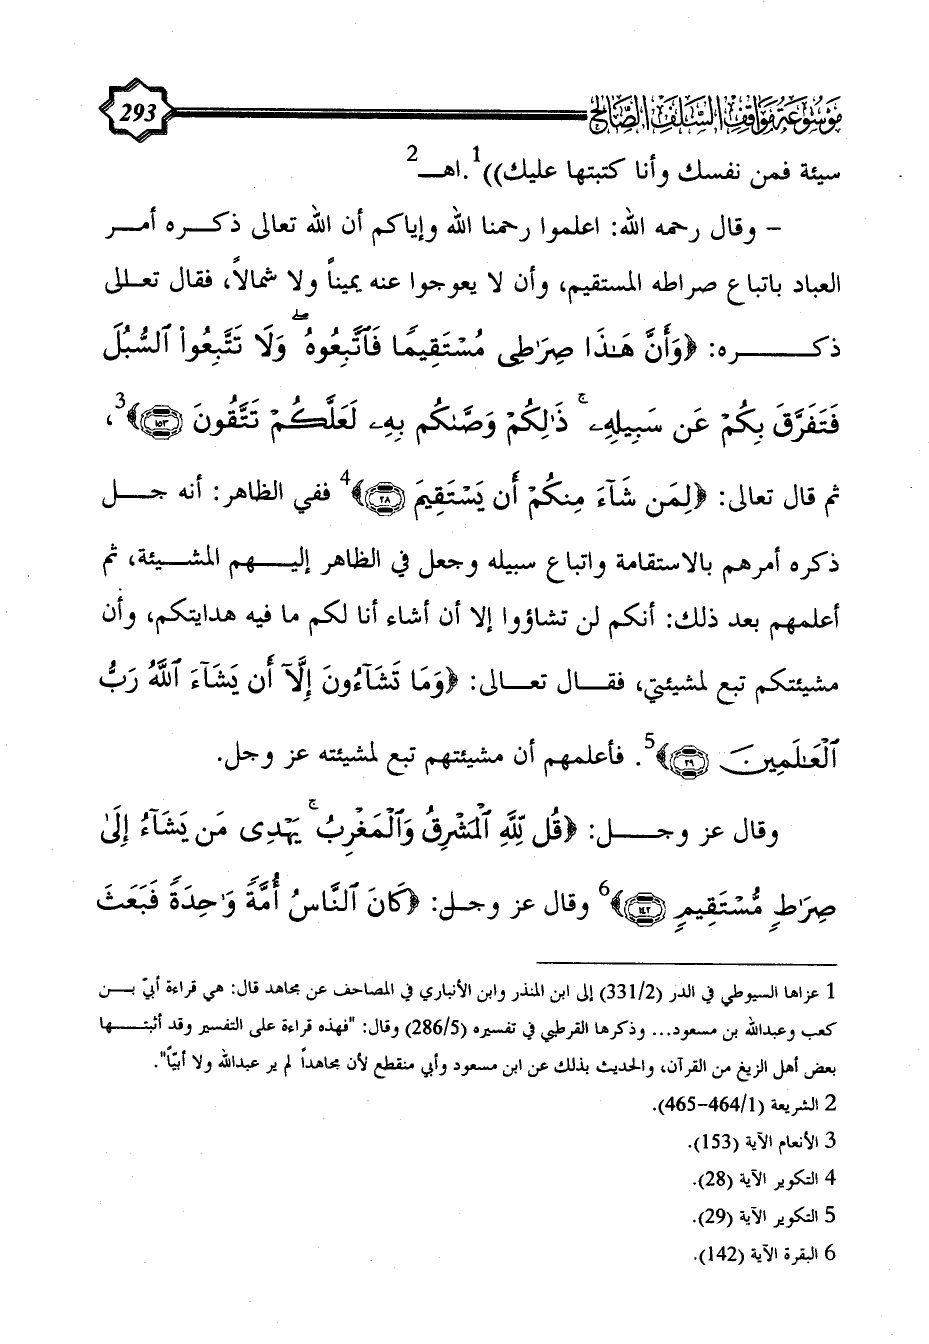 موسوعة مواقف السلف الصالح
293
سيئة فمن نفسك وأنا كتبتها عليك))1.اهـ2
– وقال رحمه الله: اعلموا رحمنا الله وإياكم أن الله تعالى ذكره أمر
العباد باتباع صراطه المستقيم، وأن لا يعوجوا عنه يميناً ولا شمالاً، فقال تعالى
ذكـره: ﴿وَأَنَّ هَٰذَا صِرَٰطِى مُسْتَقِيمًا فَٱتَّبِعُوهُ ۖ وَلَا تَتَّبِعُوا۟ ٱلسُّبُلَ
فَتَفَرَّقَ بِكُمْ عَن سَبِيلِهِۦ ۚ ذَٰلِكُمْ وَصَّىٰكُم بِهِۦ لَعَلَّكُمْ تَتَّقُونَ ١٥٣﴾3،
ثم قال تعالى: ﴿لِمَن شَآءَ مِنكُمْ أَن يَسْتَقِيمَ ٢٨﴾4 ففي الظاهر: أنه جل
ذكره أمرهم بالاستقامة واتباع سبيله وجعل في الظاهر إليهم المشيئة، ثم
أعلمهم بعد ذلك: أنكم لن تشاؤوا إلا أن أشاء أنا لكم ما فيه هدايتكم، وأن
مشيئتكم تبع لمشيئتي، فقال تعالى: ﴿وَمَا تَشَآءُونَ إِلَّآ أَن يَشَآءَ ٱللَّهُ رَبُّ
ٱلْعَٰلَمِينَ ٢٩﴾5. فأعلمهم أن مشيئتهم تبع لمشيئته عز وجل.
وقال عز وجل: ﴿قُل لِّلَّهِ ٱلْمَشْرِقُ وَٱلْمَغْرِبُ ۚ يَهْدِى مَن يَشَآءُ إِلَىٰ
صِرَٰطٍ مُّسْتَقِيمٍ ١٤٢﴾6 وقال عز وجل: ﴿كَانَ ٱلنَّاسُ أُمَّةً وَٰحِدَةً فَبَعَثَ
1 عزاها السيوطي في الدر (331/2) إلى ابن المنذر وابن الأنباري في المصاحف عن مجاهد قال: هي قراءة أبيّ بن
كعب وعبدالله بن مسعود... وذكرها القرطبي في تفسيره (286/5) وقال: "فهذه قراءة على التفسير وقد أثبتها
بعض أهل الزيغ من القرآن، والحديث بذلك عن ابن مسعود وأبي منقطع لأن مجاهداً لم ير عبدالله ولا أبيّاً".
2 الشريعة (464/1-465).
3 الأنعام الآية (153).
4 التكوير الآية (28).
5 التكوير الآية (29).
6 البقرة الآية (142).